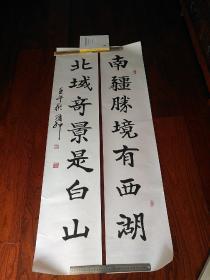 南疆勝境有西湖
北域奇景是白山